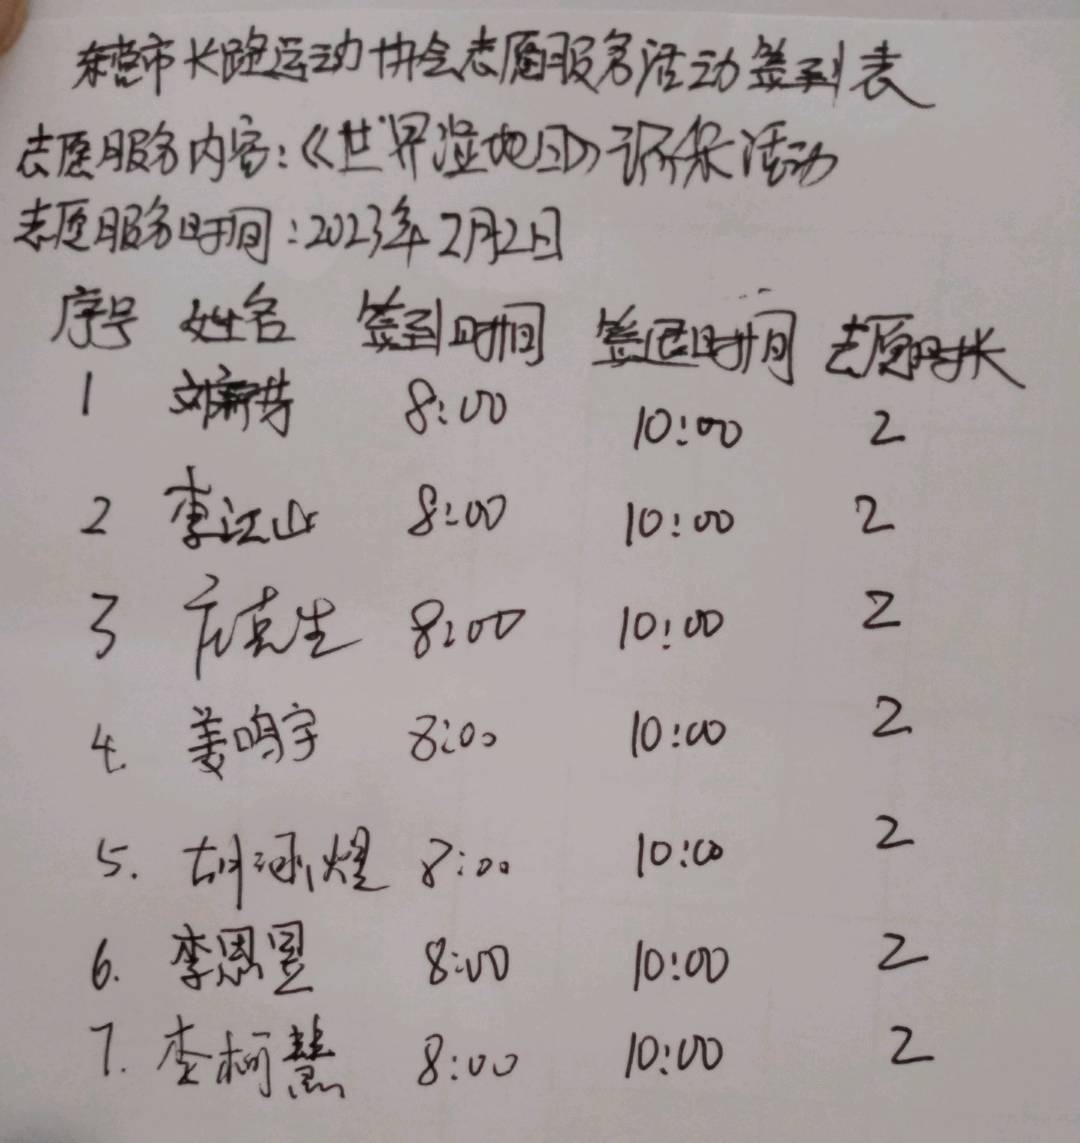 东营市长跑运动协会志愿服务活动签到表
志愿服务内容:《世界湿地日》环保活动
志愿服务时间:2023年2月2日
序号 姓名 签到时间 签退时间 志愿时长
1 刘新芳 8:00 10:00 2
2 李江山 8:00 10:00 2
3 克生 8:00 10:00 2
4. 姜鸣宇 8:00 10:00 2
5. 胡煜 8:00 10:00 2
6. 李恩昱 8:00 10:00 2
7. 李柯慧 8:00 10:00 2